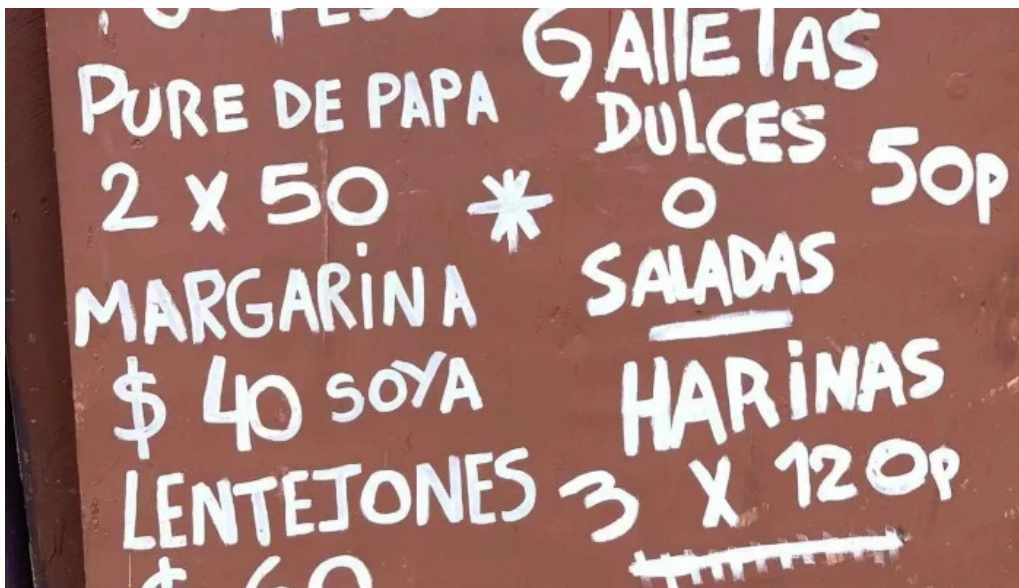 PURE DE PAPA
2 X 50
MARGARiNA
$ 40 SOYA
LENTEJONES
$ 60
*
GAllETAS
DULCES
50p
O
SALADAS
HARiNAS
3 X 120p